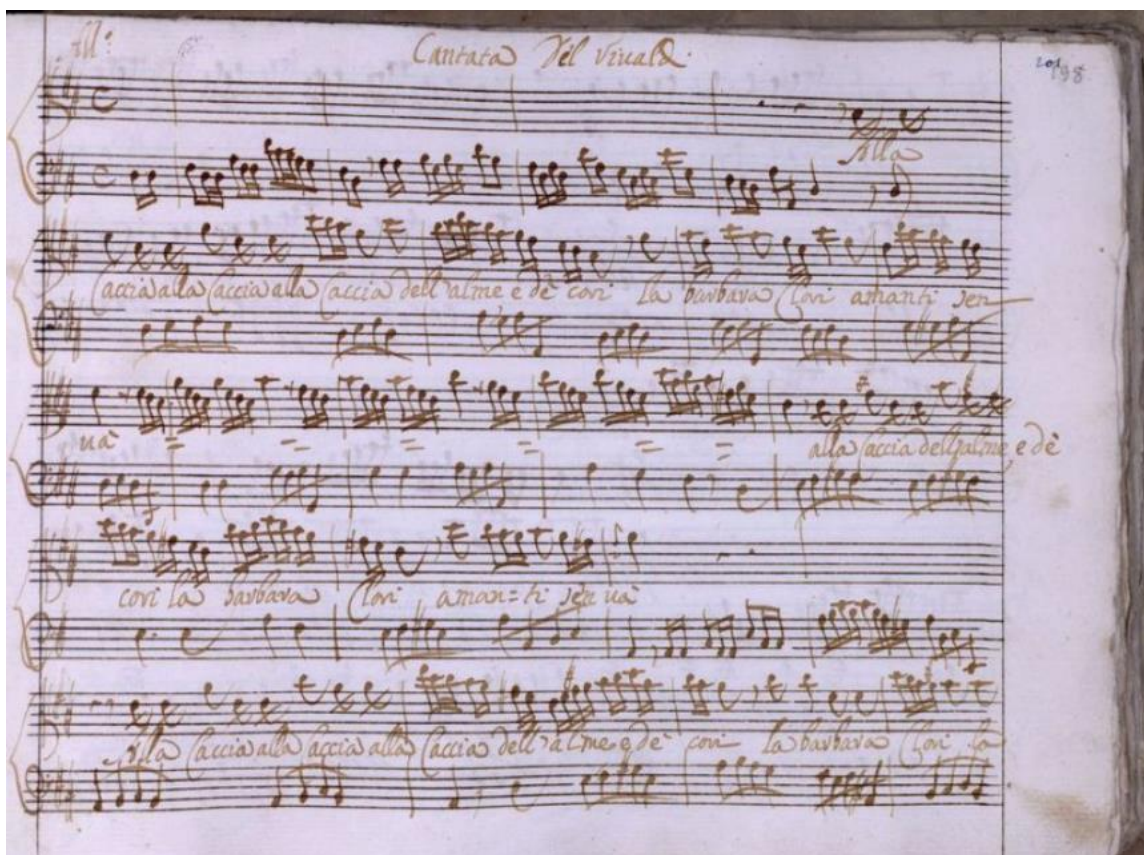 All:° Cantata Del Vivaldi. 201 198
Alla
Caccia alla Caccia alla Caccia dell'alme e dè cori la barbara Clori amanti sen
và = = = = = = alla Caccia dell'alme, e dè
cori la barbara Clori aman=ti sen và
Alla Caccia alla accia alla Caccia dell'alme e dè cori la barbara Clori la